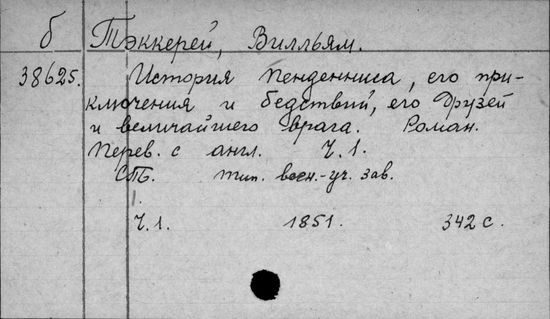 б Тэккерей, Вилльям.
38625. История Пенденниса, его при-
ключения и бедствий, его друзей
и величайшего врага. Роман.
Перев. с англ. Ч.1.
СПб. тип. воен.-уч. зав.
Ч.1. 1851. 342 с.